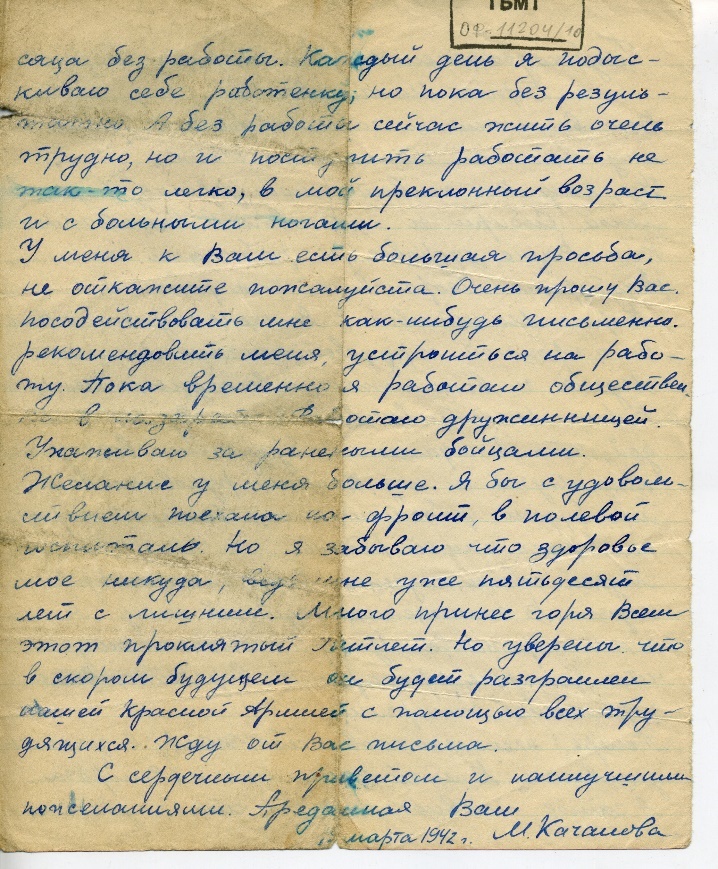 ГБМТ
ОФ-11204/10
сяца без работы. Каждый день я подыс-
киваю себе работенку, но пока без резуль-
А без работы сейчас жить очень
трудно, но и поступить работать не
так-то легко, в мой преклонный возраст
и с больными ногами.
У меня к Вам есть большая просьба,
не откажите пожалуйста. Очень прошу Вас.
посодействовать мне как-нибудь письменно.
рекомендовать меня, устроиться на рабо-
ту. Пока временно я работаю обществен
но в дружинницей.
Ухаживаю за ранеными бойцами.
Желание у меня больше. Я бы с удоволь-
ствием поехала на фронт, в полевой
госпиталь. Но я забываю что здоровье
мое никуда, ведь мне уже пятьдесят
лет с лишним. Много принес горя Всем
этот проклятый Но уверены что
в скором будущем он будет разгромлен
нашей Красной Армией с помощью всех тру-
дящихся. Жду от Вас письма.
С сердечным приветом и наилучшими
пожеланиями. Вам
марта 1942 г. М. Качанова